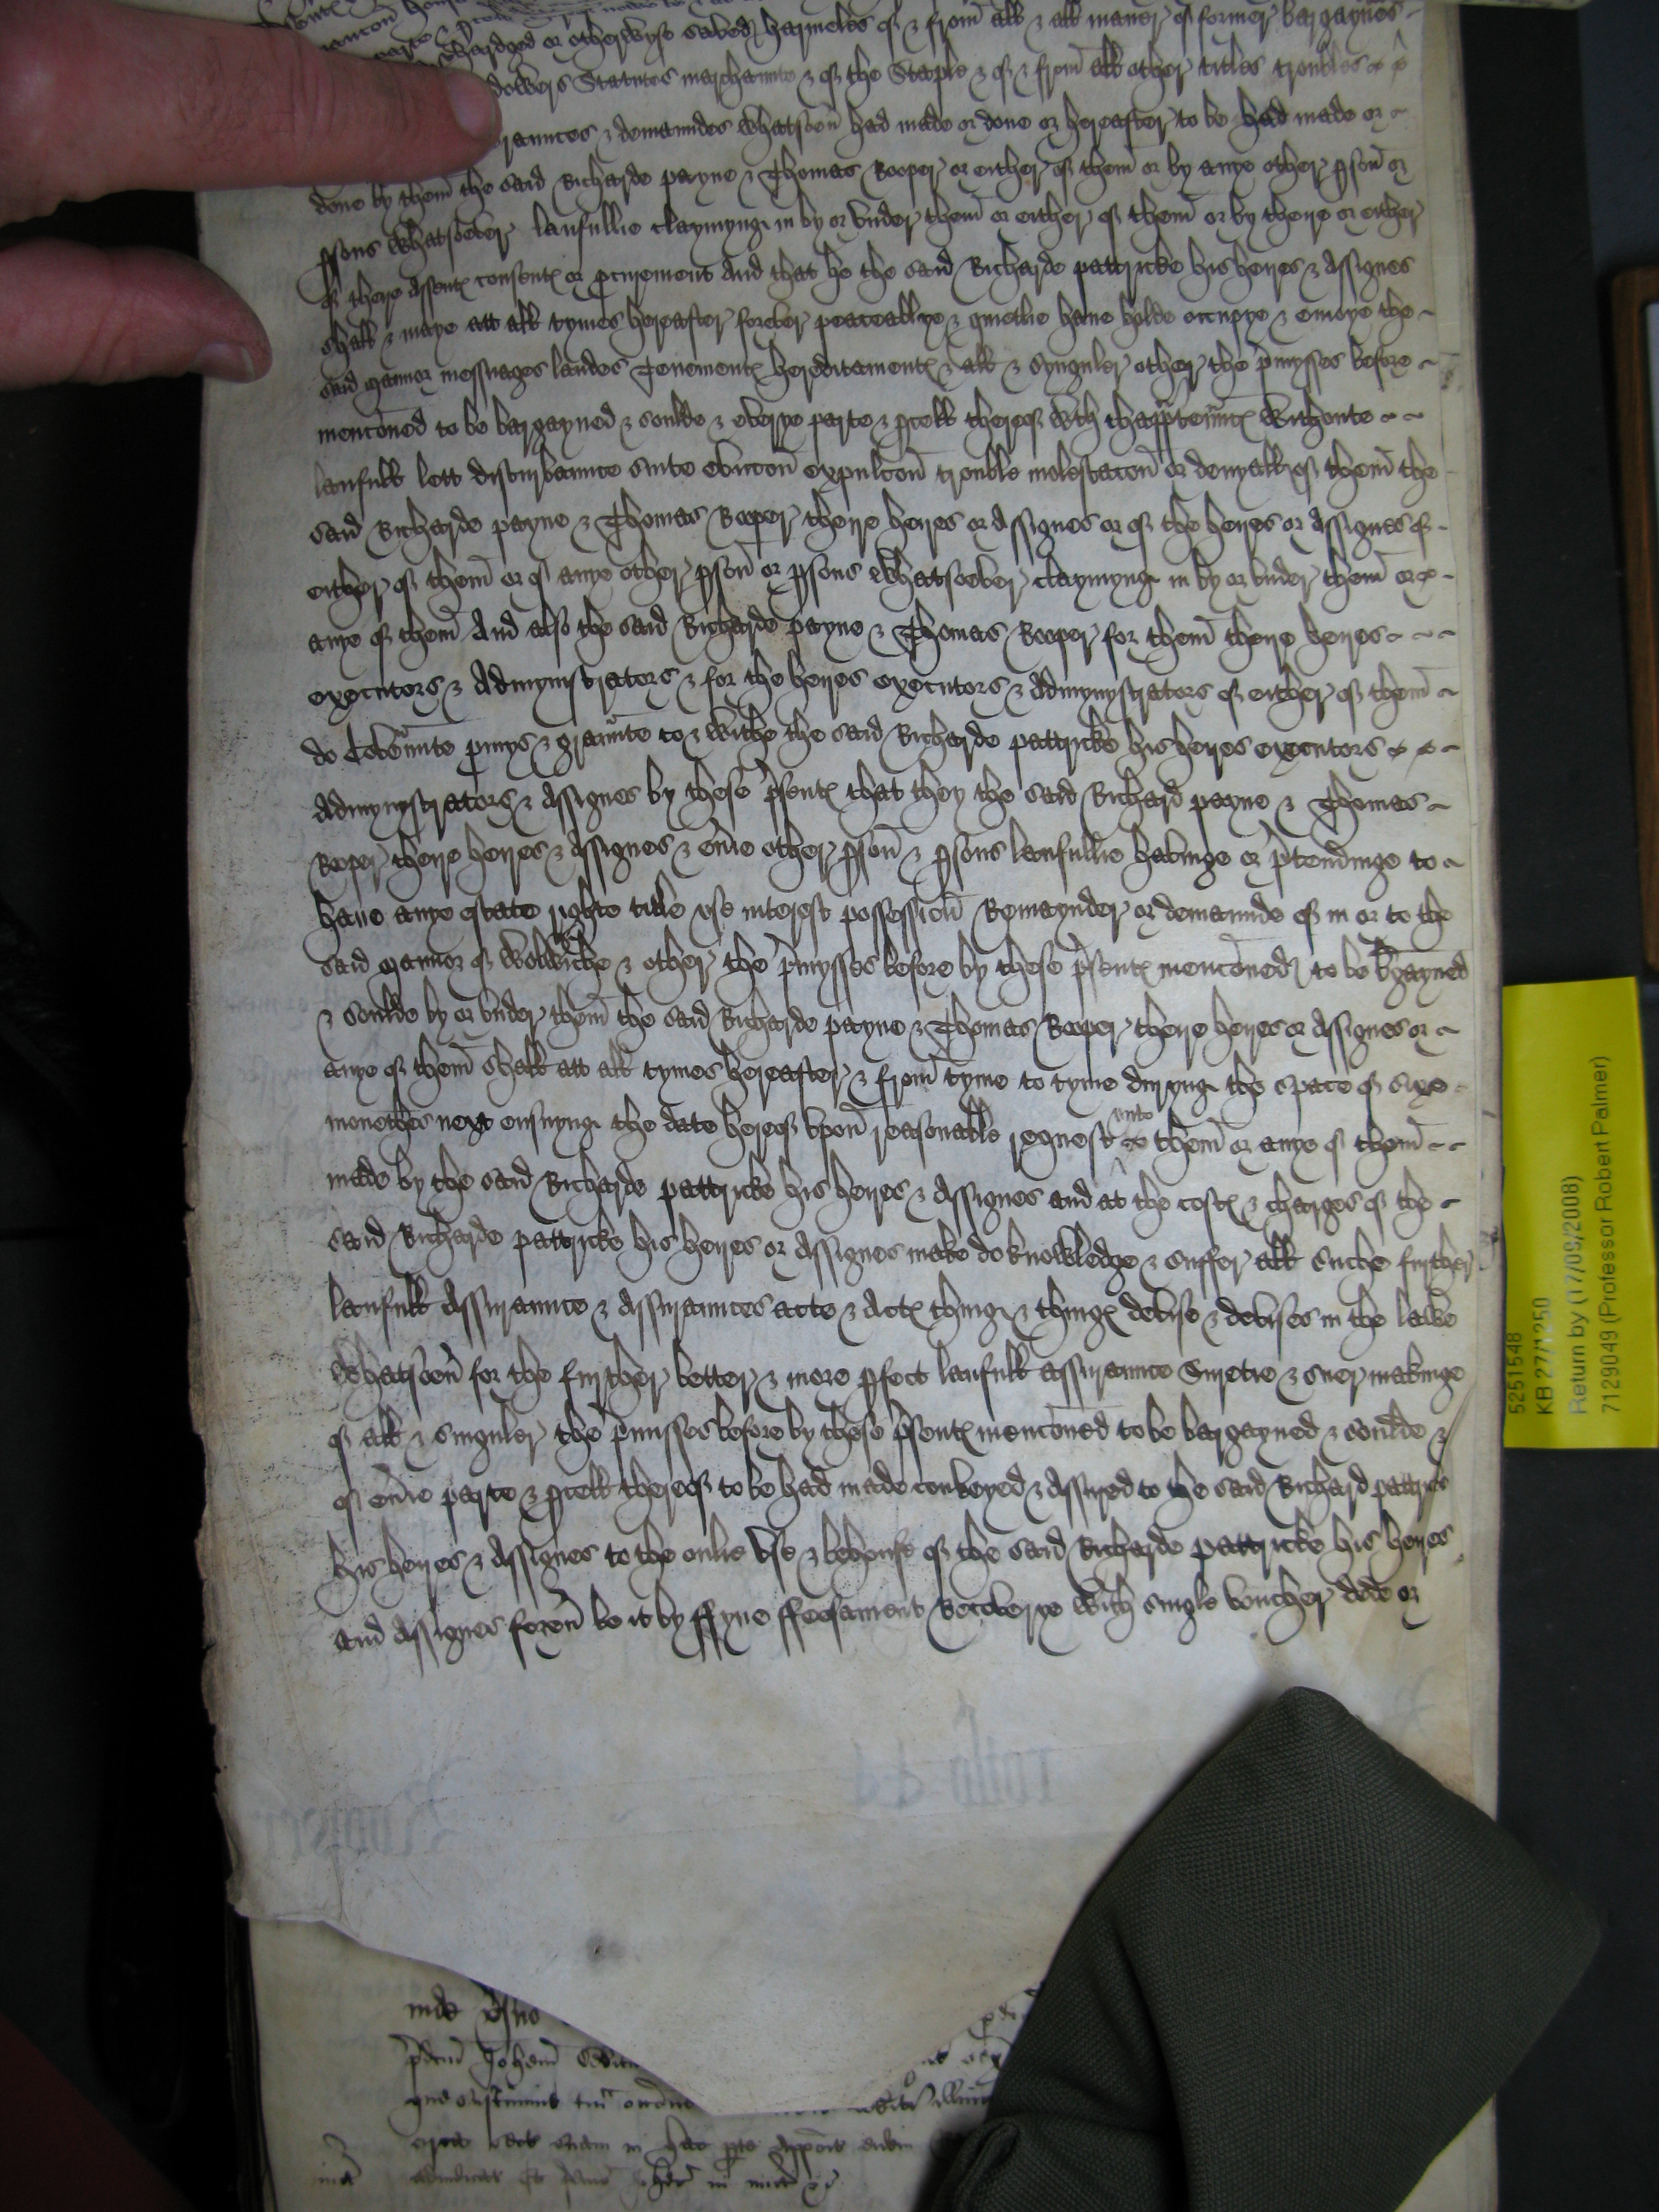 chardged or otherwyse saved harmeles of & from all & all maner of former bargaynes
dowers Statutes marchaunte & of the Staple & of & from all other titles troubles
& demaundes whatsoeu' had made or done or hereafter to be had made or
done by them the said Richarde payne & Thomas Rooper or either of them or by anye other pson or
psons whatsoever laufullie claymyng in by or vnder them or either of them or by theire or either
of theire assent consent or pcurement And that he the said Richarde pattricke his heires & assignes
shall & maye att all tymes hereafter forever peaceablye & quietlie haue holde occupye & enioye the
said mannor messuages landes Tenement hereditament & all & synguler other the p'mysses before
menconed to be bargayned & soulde & everye parte & pcell thereof wth thapptenaunc withoute
laufull lett disturbaunce suite eviccon expulcon trouble molestacon or denyall of them the
said Richarde payne & Thomas Rooper theire heires or assignes or of the heires or assignes of
either of them or of anye other pson or psons whatsoever claymyng in by or vnder them or
anye of them And also the said Richarde payne & Thomas Rooper for them theire heires
executors & Admynystrators & for the heires executors & Admynystrators of either of them
do Covennte pmys & graunte to & withe the said Richarde pattricke his heires executors
Admynystrators & assignes by these p'sent that they the said Richard payne & Thomas
Rooper theire heires & assignes & eu'ie other pson & psons laufullie havinge or p'tendinge to
haue anye estate righte title vse interest possession Remaynder or demaunde of in or to the
said mannor of wolwiche & other the p'mysses before by these p'sent menconed to be bargayned
& soulde by or vnder them the said Richarde payne & Thomas Rooper theire heires or assignes or
anye of them shall att all tymes hereafter & from tyme to tyme duryng the space of sixe
monethes next ensuyng the date hereof vpon reasonable request vnto them or anye of them
made by the said Richarde pattricke his heires & assignes and at the cost & charges of the
said Richarde pattricke his heires or assignes make do knowledge & suffer all suche further
laufull assuraunce & assuraunces acte & act thing & thing devise & devises in the lawe
whatsoeu' for the further better & more pfect laufull assuraunce Suretie & suer makinge
of all & singuler the p'misses before by these p'sent menconed to be bargayned & soulde &
of eu'ie parte & pcell thereof to be had made conveyed & assured to the said Richard pattricke
his heires & assignes to the onlie vse & behoufe of the said Richarde pattricke his heires
and assignes foreu' be it by ffyne ffeofament Recoverye with single voucher dede or
5251548
KB 27/1250
Return by (17/09/2008)
7129049 (Professor Robert Palmer)